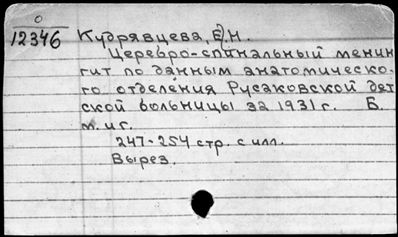 0
12346 Кудрявцева, Е.Н.
Церебро-спинальный менин
гит по данным анатомическо-
го отделения Русаковской дет
ской больницы за 1931 г. Б.
м. и г.
247-254 стр. с илл.
Вырез.